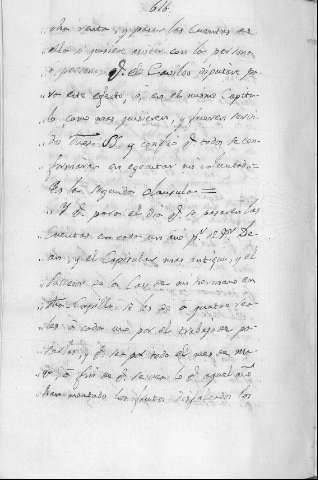 616
dha renta, y pedir las Cuentas de
ella o quisiere asistir con la persona,
o personas q.e el Cavildo diputare pa
ra este efecto, o en el mismo Capitu
lo como mas quisieren, y fueren servi
dos y confio q.e todos se con
formaran en egecutar mi voluntad =
Es la segunda clausula =
Y q.e para el dia q.e se pasaren las
Cuentas en cada un año p.r el S.r De
an, y el Capitular mas antiguo, y el
de la Casa de mi hermano en
dha Capilla se les de a quatro rea
les a cada uno por el trabajo de to
marlas, y q.e sea por todo el mes de ma
yo a fin de q.e se vea lo q.e aquel año
han montado los frutos los